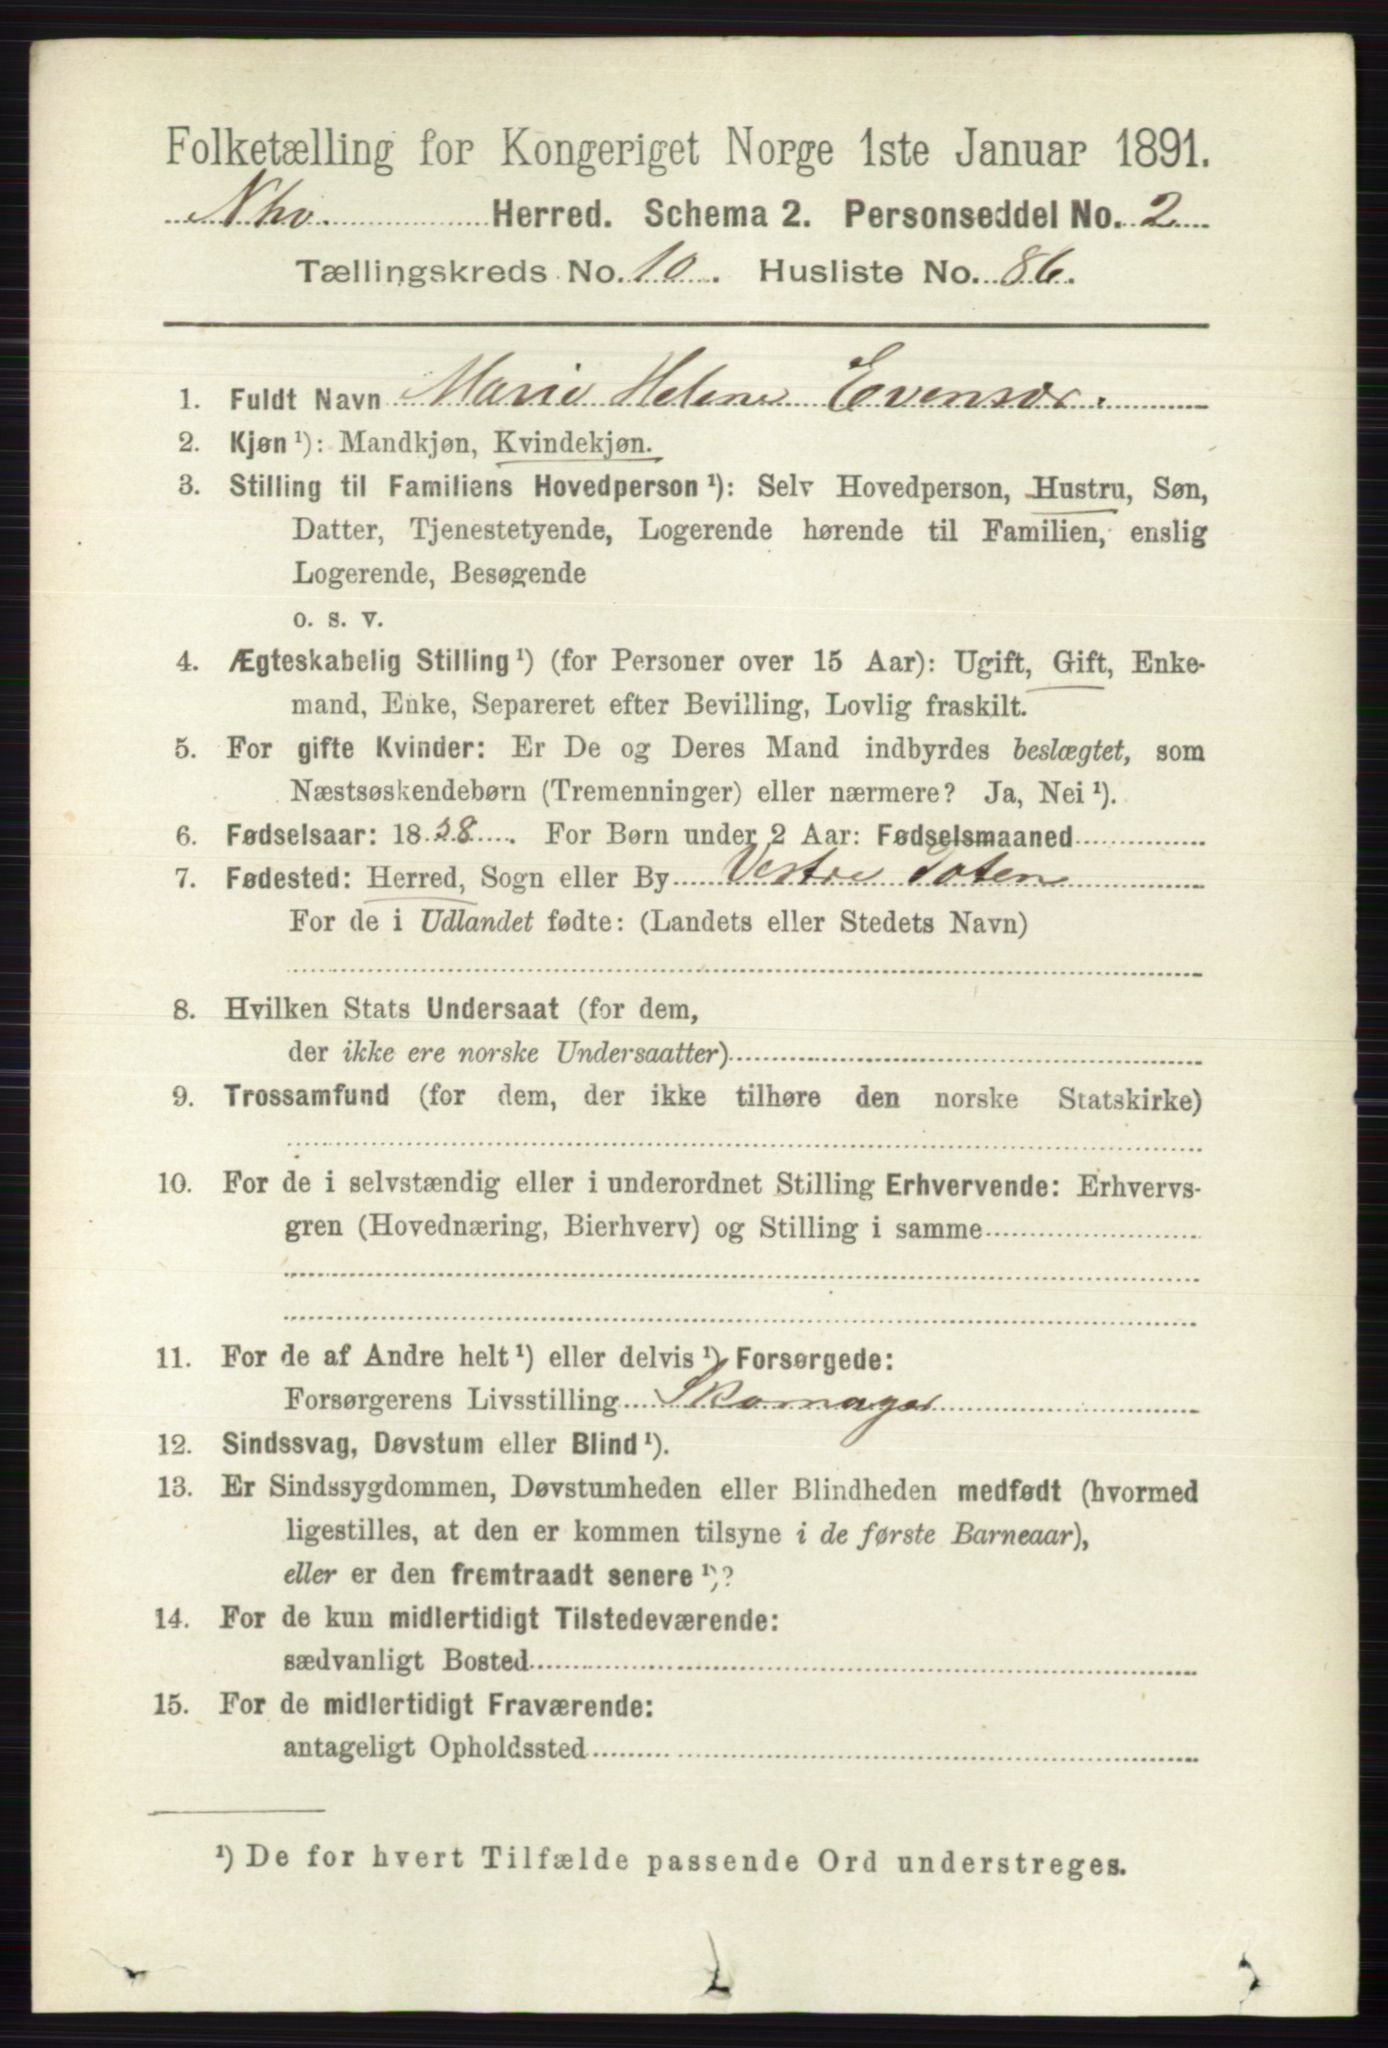 Folketælling for Kongeriget Norge 1ste Januar 1891.
Herred. Schema 2. Personseddel No. 2
Tællingskreds No. 10. Husliste No. 86.
1. Fuldt Navn Marie Helene Evensdr.
2. Kjøn ¹): Mandkjøn, Kvindekjøn.
3. Stilling til Familiens Hovedperson ¹): Selv Hovedperson, Hustru, Søn,
Datter, Tjenestetyende, Logerende hørende til Familien, enslig
Logerende, Besøgende
o. s. v.
4. Ægteskabelig Stilling ¹) (for Personer over 15 Aar): Ugift, Gift, Enke-
mand, Enke, Separeret efter Bevilling, Lovlig fraskilt.
5. For gifte Kvinder: Er De og Deres Mand indbyrdes beslægtet, som
Næstsøskendebørn (Tremenninger) eller nærmere? Ja, Nei ¹).
6. Fødselsaar: 18 . For Børn under 2 Aar: Fødselsmaaned
7. Fødested: Herred, Sogn eller By Vestre Toten
For de i Udlandet fødte: (Landets eller Stedets Navn)
8. Hvilken Stats Undersaat (for dem,
der ikke ere norske Undersaatter)
9. Trossamfund (for dem, der ikke tilhøre den norske Statskirke)
10. For de i selvstændig eller i underordnet Stilling Erhvervende: Erhvervs-
gren (Hovednæring, Bierhverv) og Stilling i samme
11. For de af Andre helt ¹) eller delvis ¹) Forsørgede:
Forsørgerens Livsstilling Skomager
12. Sindssvag, Døvstum eller Blind ¹).
13. Er Sindssygdommen, Døvstumheden eller Blindheden medfødt (hvormed
ligestilles, at den er kommen tilsyne i de første Barneaar),
eller er den fremtraadt senere ¹)?
14. For de kun midlertidigt Tilstedeværende:
sædvanligt Bosted
15. For de midlertidigt Fraværende:
antageligt Opholdssted
¹) De for hvert Tilfælde passende Ord understreges.